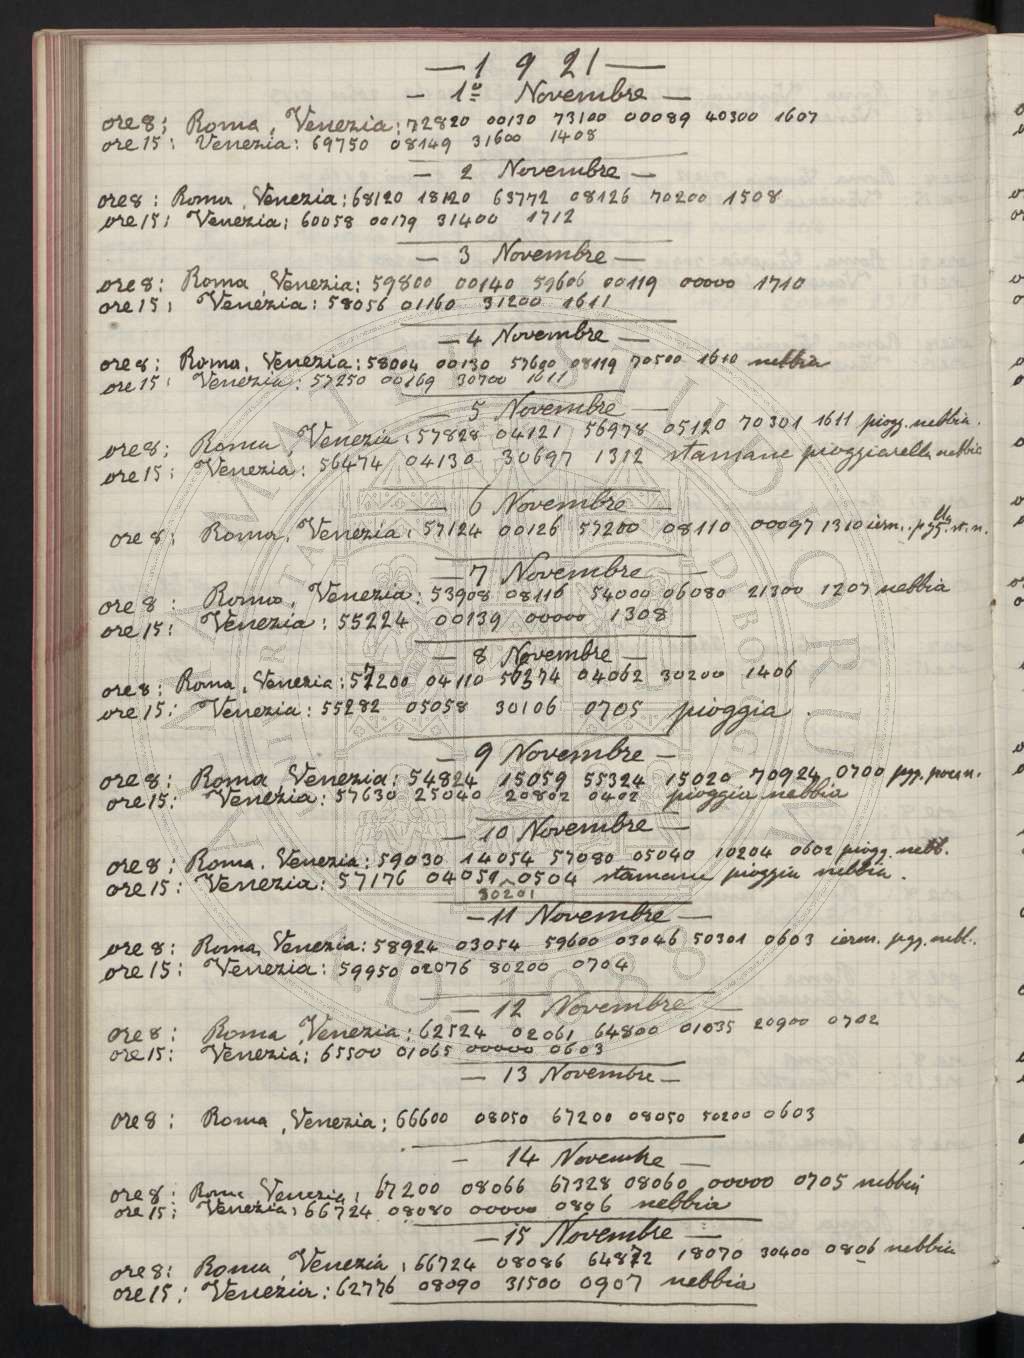 — 1921 —
— 1º Novembre —
ore 8; Roma, Venezia: 72820 00130 73100 00089 40300 1607
ore 15: Venezia: 69750 08149 31600 1408
— 2 Novembre —
ore 8: Roma, Venezia: 68120 18120 63772 08126 70200 1508
ore 15: Venezia: 60058 00179 31400 1712
— 3 Novembre —
ore 8: Roma, Venezia: 59800 00140 59606 00119 00000 1710
ore 15: Venezia: 58056 01160 31200 1611
— 4 Novembre —
ore 8: Roma, Venezia: 58004 00130 57600 08119 70500 1610 nebbia
ore 15: Venezia: 57250 00169 30700 1611
— 5 Novembre —
ore 8: Roma, Venezia: 57828 04121 56978 05120 70301 1611 piogg. nebbia.
ore 15: Venezia: 56474 04130 30697 1312 stamane pioggiarella nebbia
— 6 Novembre —
ore 8: Roma, Venezia: 57124 00126 57200 08110 00097 1310 iersn.
— 7 Novembre —
ore 8: Roma, Venezia: 53908 08116 54000 06080 21300 1207 nebbia
ore 15: Venezia: 55224 00139 00000 1308
— 8 Novembre —
ore 8: Roma, Venezia: 57200 04110 04062 30200 1406
ore 15: Venezia: 55282 05058 30106 0705 pioggia.
— 9 Novembre —
ore 8: Roma, Venezia: 54824 15059 55324 15020 70924 0700 pgg.
ore 15: Venezia: 57630 25040 20802 0402 pioggia nebbia
— 10 Novembre —
ore 8: Roma, Venezia: 59030 14054 57080 05040 10204 0602 piogg. nebb.
ore 15: Venezia: 57176 04059 0504 stamane pioggia nebbia.
30201
— 11 Novembre —
ore 8: Roma, Venezia: 58924 03054 59600 03046 50301 0603 iersn. pgg. nebb.
ore 15: Venezia: 59950 02076 80200 0704
— 12 Novembre —
ore 8: Roma, Venezia: 62524 02061 64800 01035 20900 0702
ore 15: Venezia: 65500 01065 00000 0603
— 13 Novembre —
ore 8: Roma, Venezia: 66600 08050 67200 08050 50200 0603
— 14 Novembre —
ore 8: Roma, Venezia: 67200 08066 67328 08060 00000 0705 nebbia
ore 15: Venezia: 66724 08080 00000 0806 nebbia
— 15 Novembre —
ore 8: Roma, Venezia: 66724 08086 64872 18070 30400 0806 nebbia
ore 15: Venezia: 62776 08090 31500 0907 nebbia